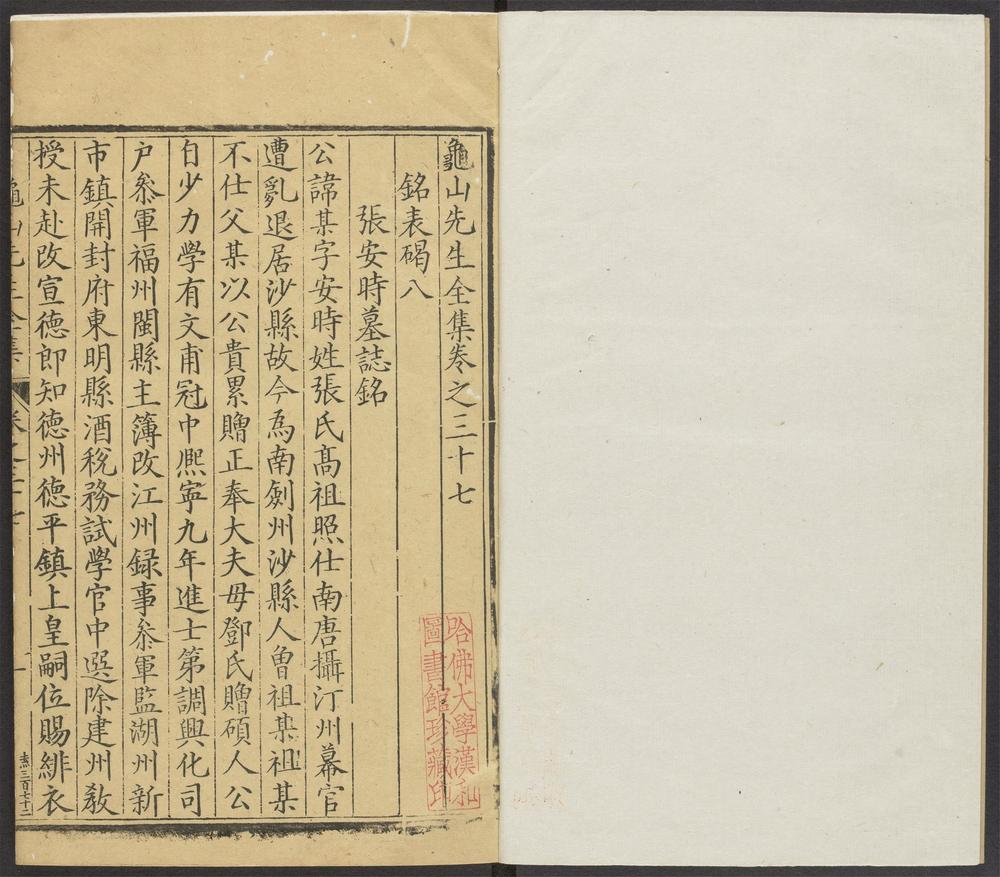 龜山先生全集卷之三十七
銘表碣八
張安時墓誌銘
公諱某字安時姓張氏髙祖照仕南唐攝汀州幕官
遭亂退居沙縣故今為南劍州沙縣人曾祖某祖某
不仕父某以公貴累贈正奉大夫母鄧氏贈碩人公
自少力學有文甫冠中熈寧九年進士第調興化司
户叅軍福州閩縣主簿改江州録事叅軍監湖州新
市鎮開封府東明縣酒税務試學官中選除建州教
授未赴改宣徳郎知徳州徳平鎮上皇嗣位賜緋衣
龜山先生全集
卷之三十七
一
三百七十二
哈佛大學漢和
圖書館珍藏印